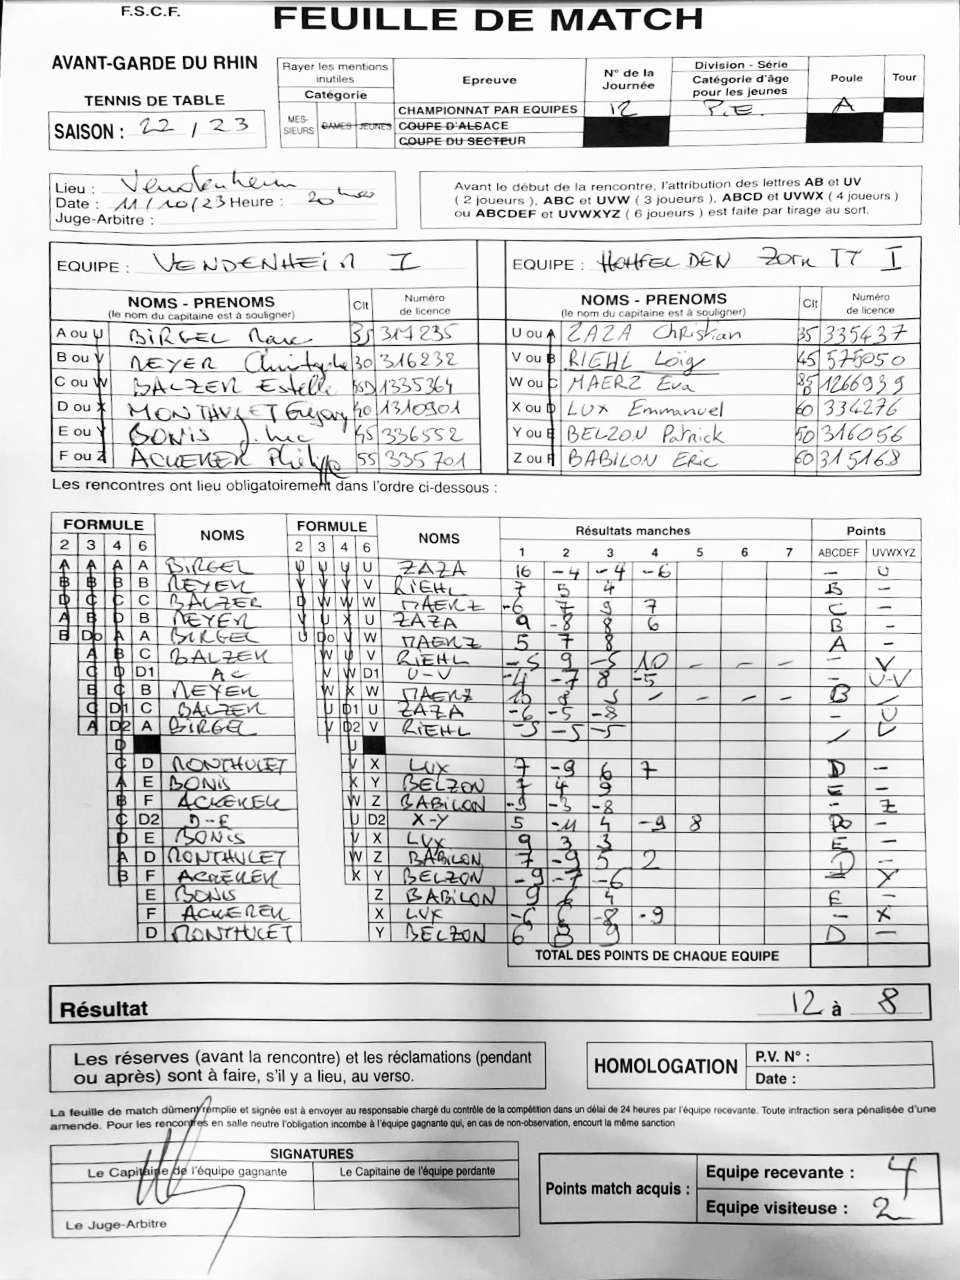 F.S.C.F.
FEUILLE DE MATCH
AVANT-GARDE DU RHIN
TENNIS DE TABLE
SAISON : 22 / 23
Rayer les mentions inutiles
Catégorie
Epreuve
N° de la Journée
Division - Série
Catégorie d'âge pour les jeunes
Poule
Tour
MES-SIEURS DAMES JEUNES
CHAMPIONNAT PAR EQUIPES 12 P.E. A
COUPE D'ALSACE
COUPE DU SECTEUR
Lieu : Vendenheim
Date : 11/10/23 Heure : 20
Juge-Arbitre :
Avant le début de la rencontre, l'attribution des lettres AB et UV
( 2 joueurs ), ABC et UVW ( 3 joueurs ), ABCD et UVWX ( 4 joueurs )
ou ABCDEF et UVWXYZ ( 6 joueurs ) est faite par tirage au sort.
EQUIPE : VENDENHEIM I
EQUIPE : HOHFELDEN ZORN TT I
NOMS - PRENOMS Clt Numéro de licence
(le nom du capitaine est à souligner)
NOMS - PRENOMS Clt Numéro de licence
(le nom du capitaine est à souligner)
A ou U BIRGEL Marc 35 317235
U ou A ZAZA Christian 35 335437
B ou V MEYER Christophe 30 316232
V ou B RIEHL Loïg 45 575050
C ou W BALZER Estelle 1335364
W ou C MAERZ Eva 85D 1266939
D ou X MONTHULET Grégory 40 1310901
X ou D LUX Emmanuel 60 334276
E ou Y BONIS J. Luc 45 336552
Y ou E BELZON Patrick 50 316056
F ou Z ACKERER Philippe 55 335701
Z ou F BABILON Eric 60 315168
Les rencontres ont lieu obligatoirement dans l'ordre ci-dessous :
FORMULE NOMS FORMULE NOMS Résultats manches Points
2 3 4 6 2 3 4 6 1 2 3 4 5 6 7 ABCDEF UVWXYZ
A A A A BIRGEL U U U U ZAZA 16 -4 -4 -6 - U
B B B B MEYER V V V V RIEHL 7 5 4 B -
D C C C BALZER D W W W MAERZ -6 7 9 7 C -
A B D B MEYER V U X U ZAZA 9 -8 8 6 B -
B Do A A BIRGEL U Do V W MAERZ 5 7 8 A -
A B C BALZER W U V RIEHL -5 9 -5 10 - - - - V
C D D1 AC V W D1 U-V -4 -7 8 -5 - U-V
B C B MEYER W X W MAERZ 10 8 5 - - - - B -
C D1 C BALZER U D1 U ZAZA -6 -5 -8 - U
A D2 A BIRGEL V D2 V RIEHL -5 -5 -5 - V
D U
C D MONTHULET V X LUX 7 -9 6 7 D -
A E BONIS X Y BELZON 7 4 9 E -
B F ACKERER W Z BABILON -9 -3 -8 - Z
C D2 D-E U D2 X-Y 5 -11 4 -9 8 Do -
D E BONIS V X LUX 9 3 3 E -
A D MONTHULET W Z BABILON 7 -9 5 2 D -
B F ACKERER X Y BELZON -9 -7 -6 - Y
E BONIS Z BABILON 9 6 4 E -
F ACKERER X LUX -6 6 -8 -9 - X
D MONTHULET Y BELZON 6 8 9 D -
TOTAL DES POINTS DE CHAQUE EQUIPE
Résultat 12 à 8
Les réserves (avant la rencontre) et les réclamations (pendant
ou après) sont à faire, s'il y a lieu, au verso.
HOMOLOGATION
P.V. N° :
Date :
La feuille de match dûment remplie et signée est à envoyer au responsable chargé du contrôle de la compétition dans un délai de 24 heures par l'équipe recevante. Toute infraction sera pénalisée d'une
amende. Pour les rencontres en salle neutre l'obligation incombe à l'équipe gagnante qui, en cas de non-observation, encourt la même sanction
SIGNATURES
Le Capitaine de l'équipe gagnante
Le Capitaine de l'équipe perdante
Le Juge-Arbitre
Points match acquis :
Equipe recevante : 4
Equipe visiteuse : 2